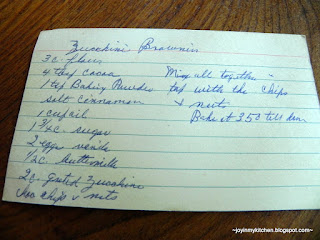 Zucchini Brownies
3 c. flour
4 tbsp cocoa
1 tsp Baking Powder
salt cinnamon
1 cup oil
1 3/4 c. sugar
2 eggs vanilla
1/2 c. buttermilk
2 c. grated Zucchini
choc chips & nuts
Mix all together -
top with the chips
& nuts
Bake at 350 till done
~joyinmykitchen.blogspot.com~